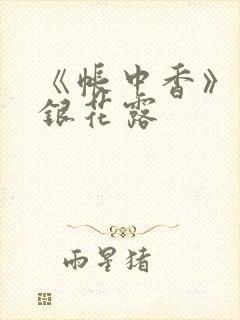 《帐中香》
银花露
雨星猪